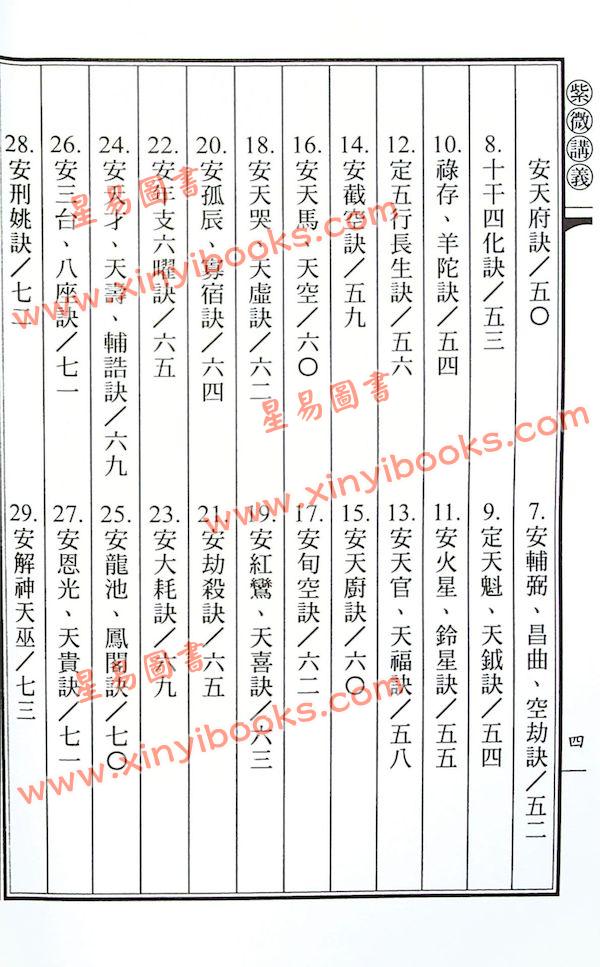 紫微講義
安天府訣／五〇
7. 安輔弼、昌曲、空劫訣／五二
8. 十干四化訣／五三
9. 定天魁、天鉞訣／五四
10. 祿存、羊陀訣／五四
11. 安火星、鈴星訣／五五
12. 定五行長生訣／五六
13. 安天官、天福訣／五八
14. 安截空訣／五九
15. 安天廚訣／六〇
16. 安天馬、天空／六〇
17. 安旬空訣／六二
18. 安天哭、天虛訣／六二
19. 安紅鸞、天喜訣／六三
20. 安孤辰、寡宿訣／六四
21. 安劫殺訣／六五
22. 安年支六曜訣／六五
23. 安大耗訣／六九
24. 安天才、天壽、輔誥訣／六九
25. 安龍池、鳳閣訣／七〇
26. 安三台、八座訣／七一
27. 安恩光、天貴訣／七一
28. 安刑姚訣／七二
29. 安解神天巫／七三
四
星易圖書
www.xinyibooks.com
星易圖書
www.xinyibooks.com
星易圖書
www.xinyibooks.com